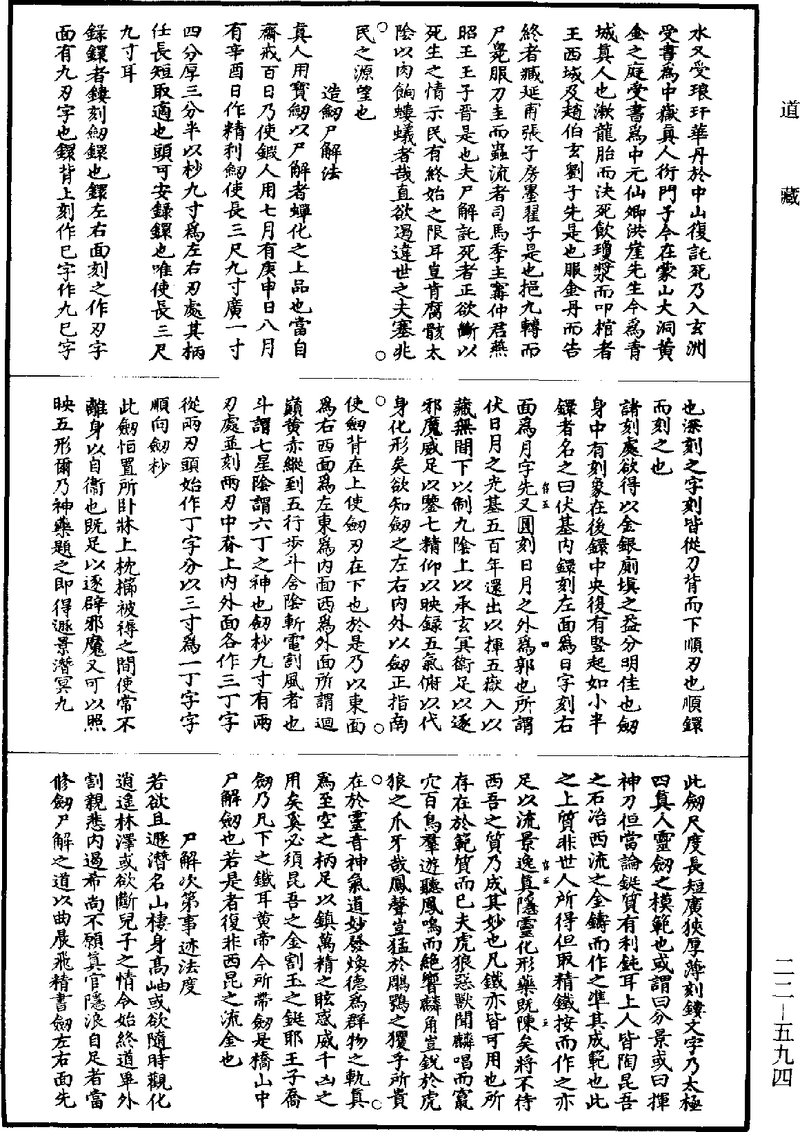 道藏
水又受琅玕華丹於中山復託死乃入玄洲
受書爲中嶽真人衍門子今在蒙山大洞黃
金之庭受書爲中元仙卿洪崖先生今爲青
城真人也漱龍胎而決死飲瓊漿而叩棺者
王西城及趙伯玄劉子先是也服金丹而告
終者臧延甫張子房墨翟子是也挹九轉而
尸㚟服刀圭而蟲流者司馬季主寗仲君燕
昭王王子晉是也夫尸解託死者正欲斷以
死生之情示民有終始之限耳豈肯腐骸太
陰以肉餉螻蟻者哉直欲遏違世之夫塞兆
民之源望也
造劒尸解法
真人用寶劒以尸解者蟬化之上品也當自
齋戒百日乃使鍛人用七月有庚申日八月
有辛酉日作精利劒使長三尺九寸廣一寸
四分厚三分半以杪九寸爲左右刃處其柄
任長短取適也頭可安鐩鐶也唯使長三尺
九寸耳
鐩鐶者鏤刻劒鐶也鐶左右面刻之作刃字
面有九刃字也鐶背上刻作巳字作九巳字
也深刻之字刻皆從刀背而下順刃也順鐶
而刻之也
諸刻處欲得以金銀廁塡之益分明佳也劒
身中有刻象在後鐶中央復有竪起如小半
鐶者名之曰伏基内鐶刻左面爲日字刻右
面爲月字先又圓刻日月之外爲郭也所謂
伏日月之光基五百年還出以揮五嶽入以
藏無間下以制九陰上以承玄冥衛足以逐
邪魔威足以鑒七精仰以映錄五氣俯以代
身化形矣欲知劒之左右内外以劒正指南
使劒背在上使劒刃在下也於是乃以東面
爲右西面爲左東爲内面西爲外面所謂迴
巔黄赤縱到五行步斗舍陰斬電割風者也
斗謂七星陰謂六丁之神也劒杪九寸有兩
刃處並刻兩刃中脊上内外面各作三丁字
從兩刃頭始作丁字分以三寸爲一丁字字
順向劒杪
此劒恒置所卧牀上枕櫋被褥之間使常不
離身以自衛也既足以逐辟邪魔又可以照
映五形爾乃神藥題之即得遯景潛冥九
此劒尺度長短廣狹厚薄刻鏤文字乃太極
四真人靈劒之模範也或謂曰分景或曰揮
神刀但當論鋌質有利鈍耳上人皆陶昆吾
之石冶西流之金鑄而作之準其成範也此
之上質非世人所得但取精鐵按而作之亦
足以流景逸真隱靈化形藥既陳矣將不待
西吾之質乃成其妙也凡鐵亦皆可用也所
存在於範質而已夫虎狼惡獸聞麟唱而竄
穴百鳥羣遊聽鳳鳴而絶響麟角豈銳於虎
狼之爪牙哉鳳聲豈猛於鵰鶚之玃乎所貴
在於靈音神氣道妙發煥德爲群物之軌真
爲至空之柄足以鎮萬精之眩惑威千凶之
用矣奚必須昆吾之金割玉之鋌耶王子喬
劒乃凡下之鐵耳黄帝今所帶劒是橋山中
尸解劒也若是者復非西昆之流金也
尸解次第事迹法度
若欲且遯潛名山棲身髙岫或欲隨時觀化
逍遥林澤或欲斷兒子之情令始終道畢外
割親悲内遏希尚不願真官隱浪自足者當
修劒尸解之道以曲晨飛精書劒左右面先
二二—五九四